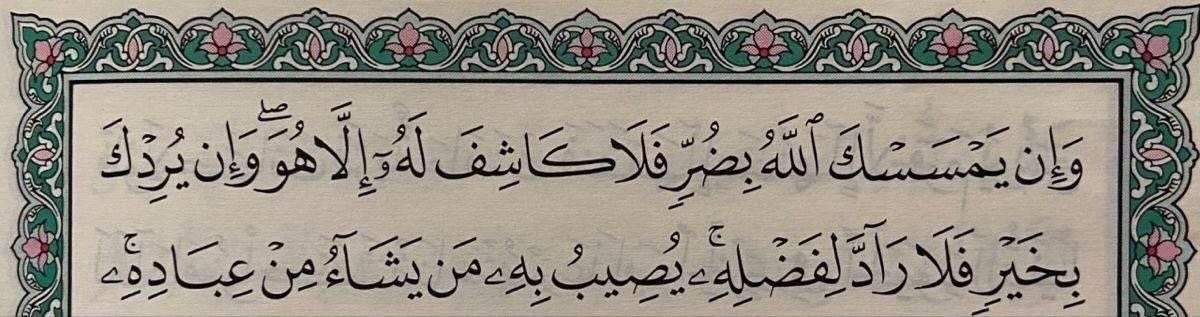 وَإِن يَمْسَسْكَ ٱللَّهُ بِضُرٍّ فَلَا كَاشِفَ لَهُۥٓ إِلَّا هُوَۖ وَإِن يُرِدْكَ
بِخَيْرٍ فَلَا رَآدَّ لِفَضْلِهِۦۚ يُصِيبُ بِهِۦ مَن يَشَآءُ مِنْ عِبَادِهِۦۚ